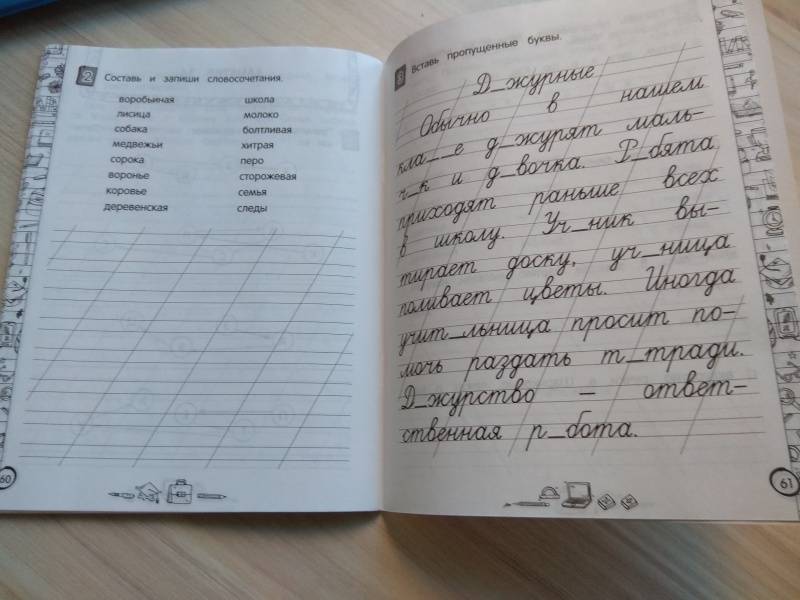 2 Составь и запиши словосочетания.
воробьиная школа
лисица молоко
собака болтливая
медвежьи хитрая
сорока перо
воронье сторожевая
коровье семья
деревенская следы
60
3 Вставь пропущенные буквы.
Д_журные
Обычно в нашем
кла_ _е д_журят маль-
ч_к и д_вочка. Р_бята
приходят раньше всех
в школу. Уч_ник вы-
тирает доску, уч_ница
поливает цветы. Иногда
учит_льница просит по-
мочь раздать т_тради.
Д_журство – ответ-
ственная р_бота.
61